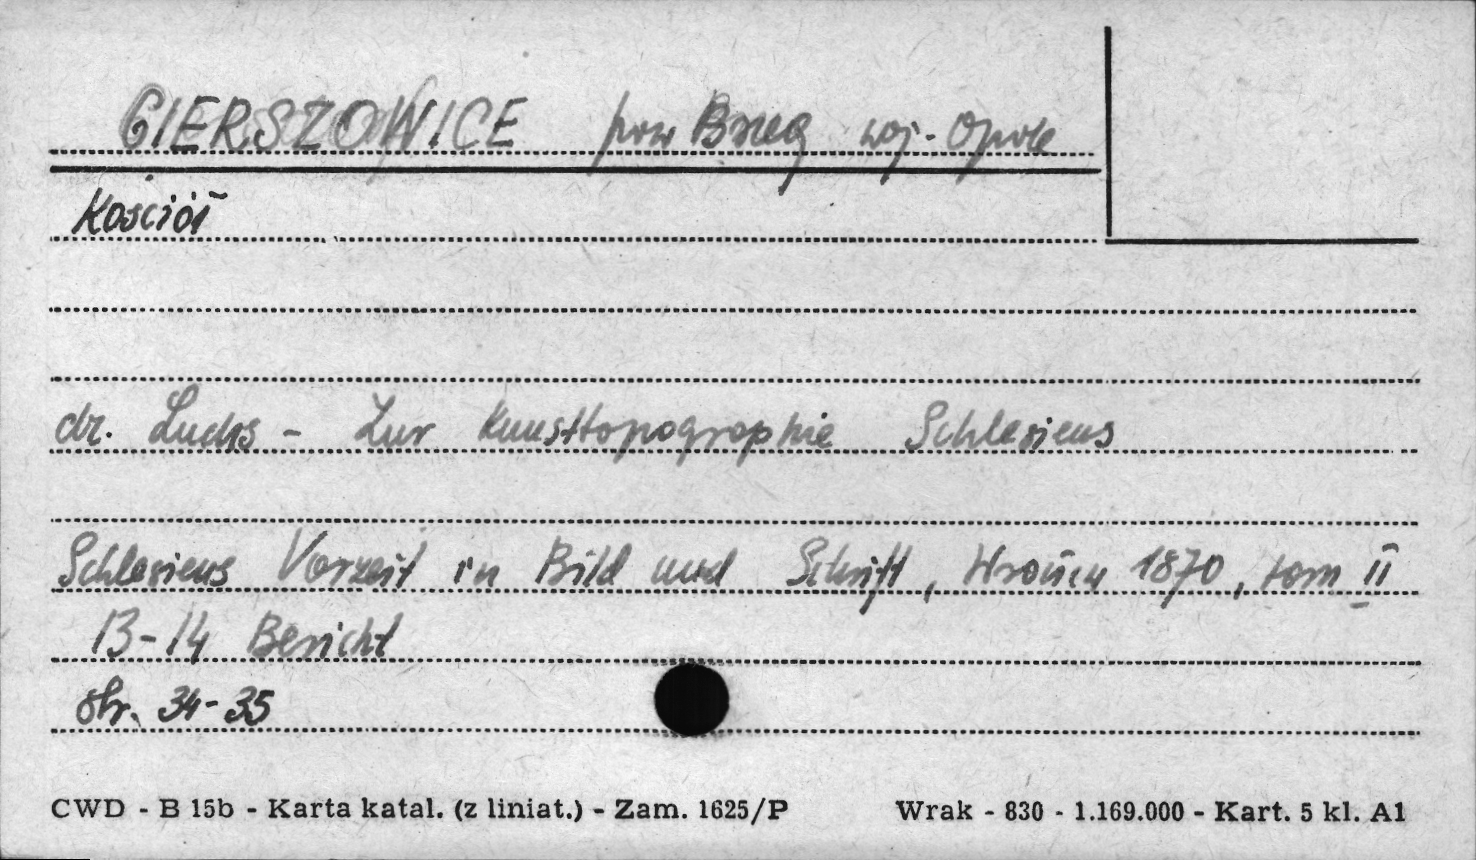 GIERSZOWICE pow Brzeg woj. Opole
Kościół
dr. Luchs - Zur Kunsttopographie Schlesiens
Schlesiens Vorzeit in Bild und Schrift, 1870, tom II
13-14 Bericht
str. 34-35
CWD - B 15b - Karta katal. (z liniat.) - Zam. 1625/P Wrak - 830 - 1.169.000 - Kart. 5 kl. A1